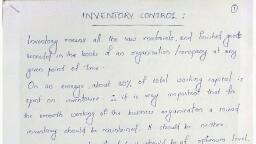 INVENTORY CONTROL :
1
Inventory means all the raw materials, and finished goods
recorded in the books of an organisation / company at any
given point of time.
On an average about 60% of total working capital is
spent on inventories ∴ it is very important that for
the smooth working of the business organisation a sound
inventory should be maintained. It should be neither
should be of optimum level.